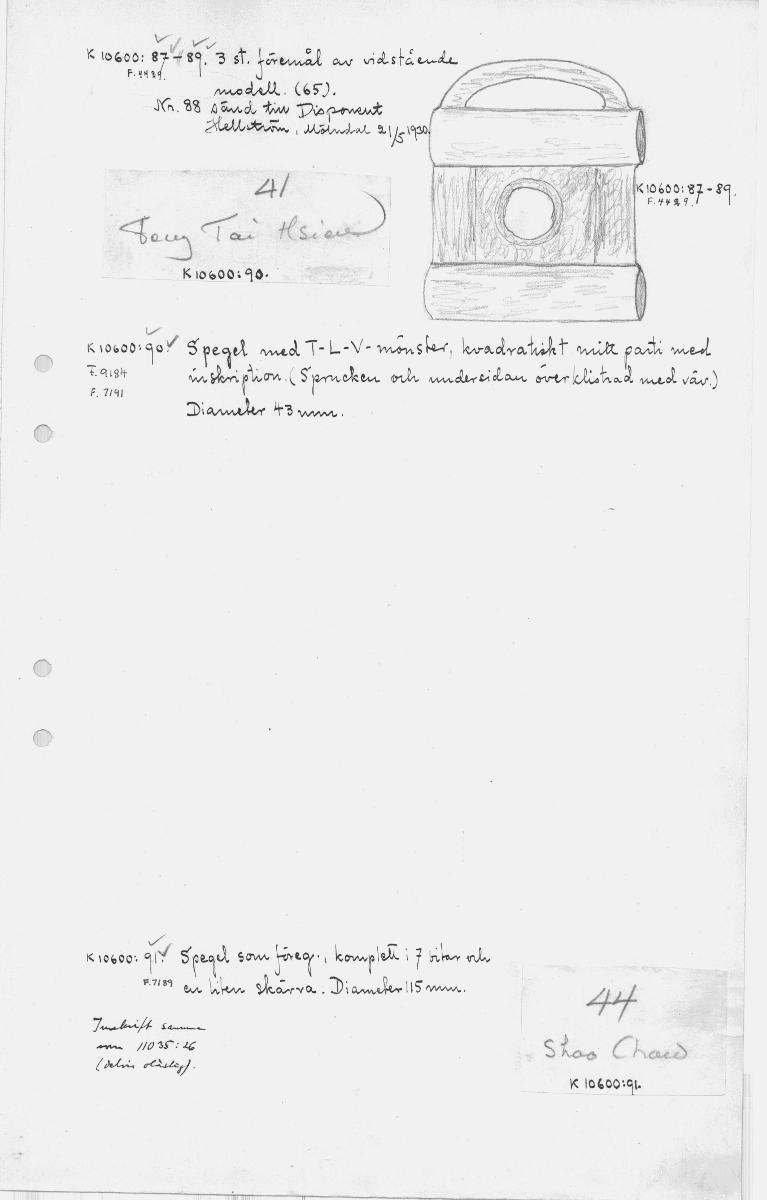 K 10600: 87-89. 3 st. föremål av vidstående
F. 4429.
modell. (65).
Nr. 88 sänd till Disponent
Hellström, Mölndal 21/5 1930.
41
Tai Hsien
K 10600:90.
K 10600:87-89.
F. 4429.
K 10600:90. Spegel med T-L-V-mönster, kvadratiskt mitt parti med
F. 9184
inskription. (Sprucken och undersidan överklistrad med väv.)
F. 7191
Diameter 43 mm.
K 10600: 91. Spegel som föreg., komplett i 7 bitar och
F. 7189
en liten skärva. Diameter 115 mm.
Inskrift samma
som 11035:26
(delvis oläslig).
44
Shao Chow
K 10600:91.